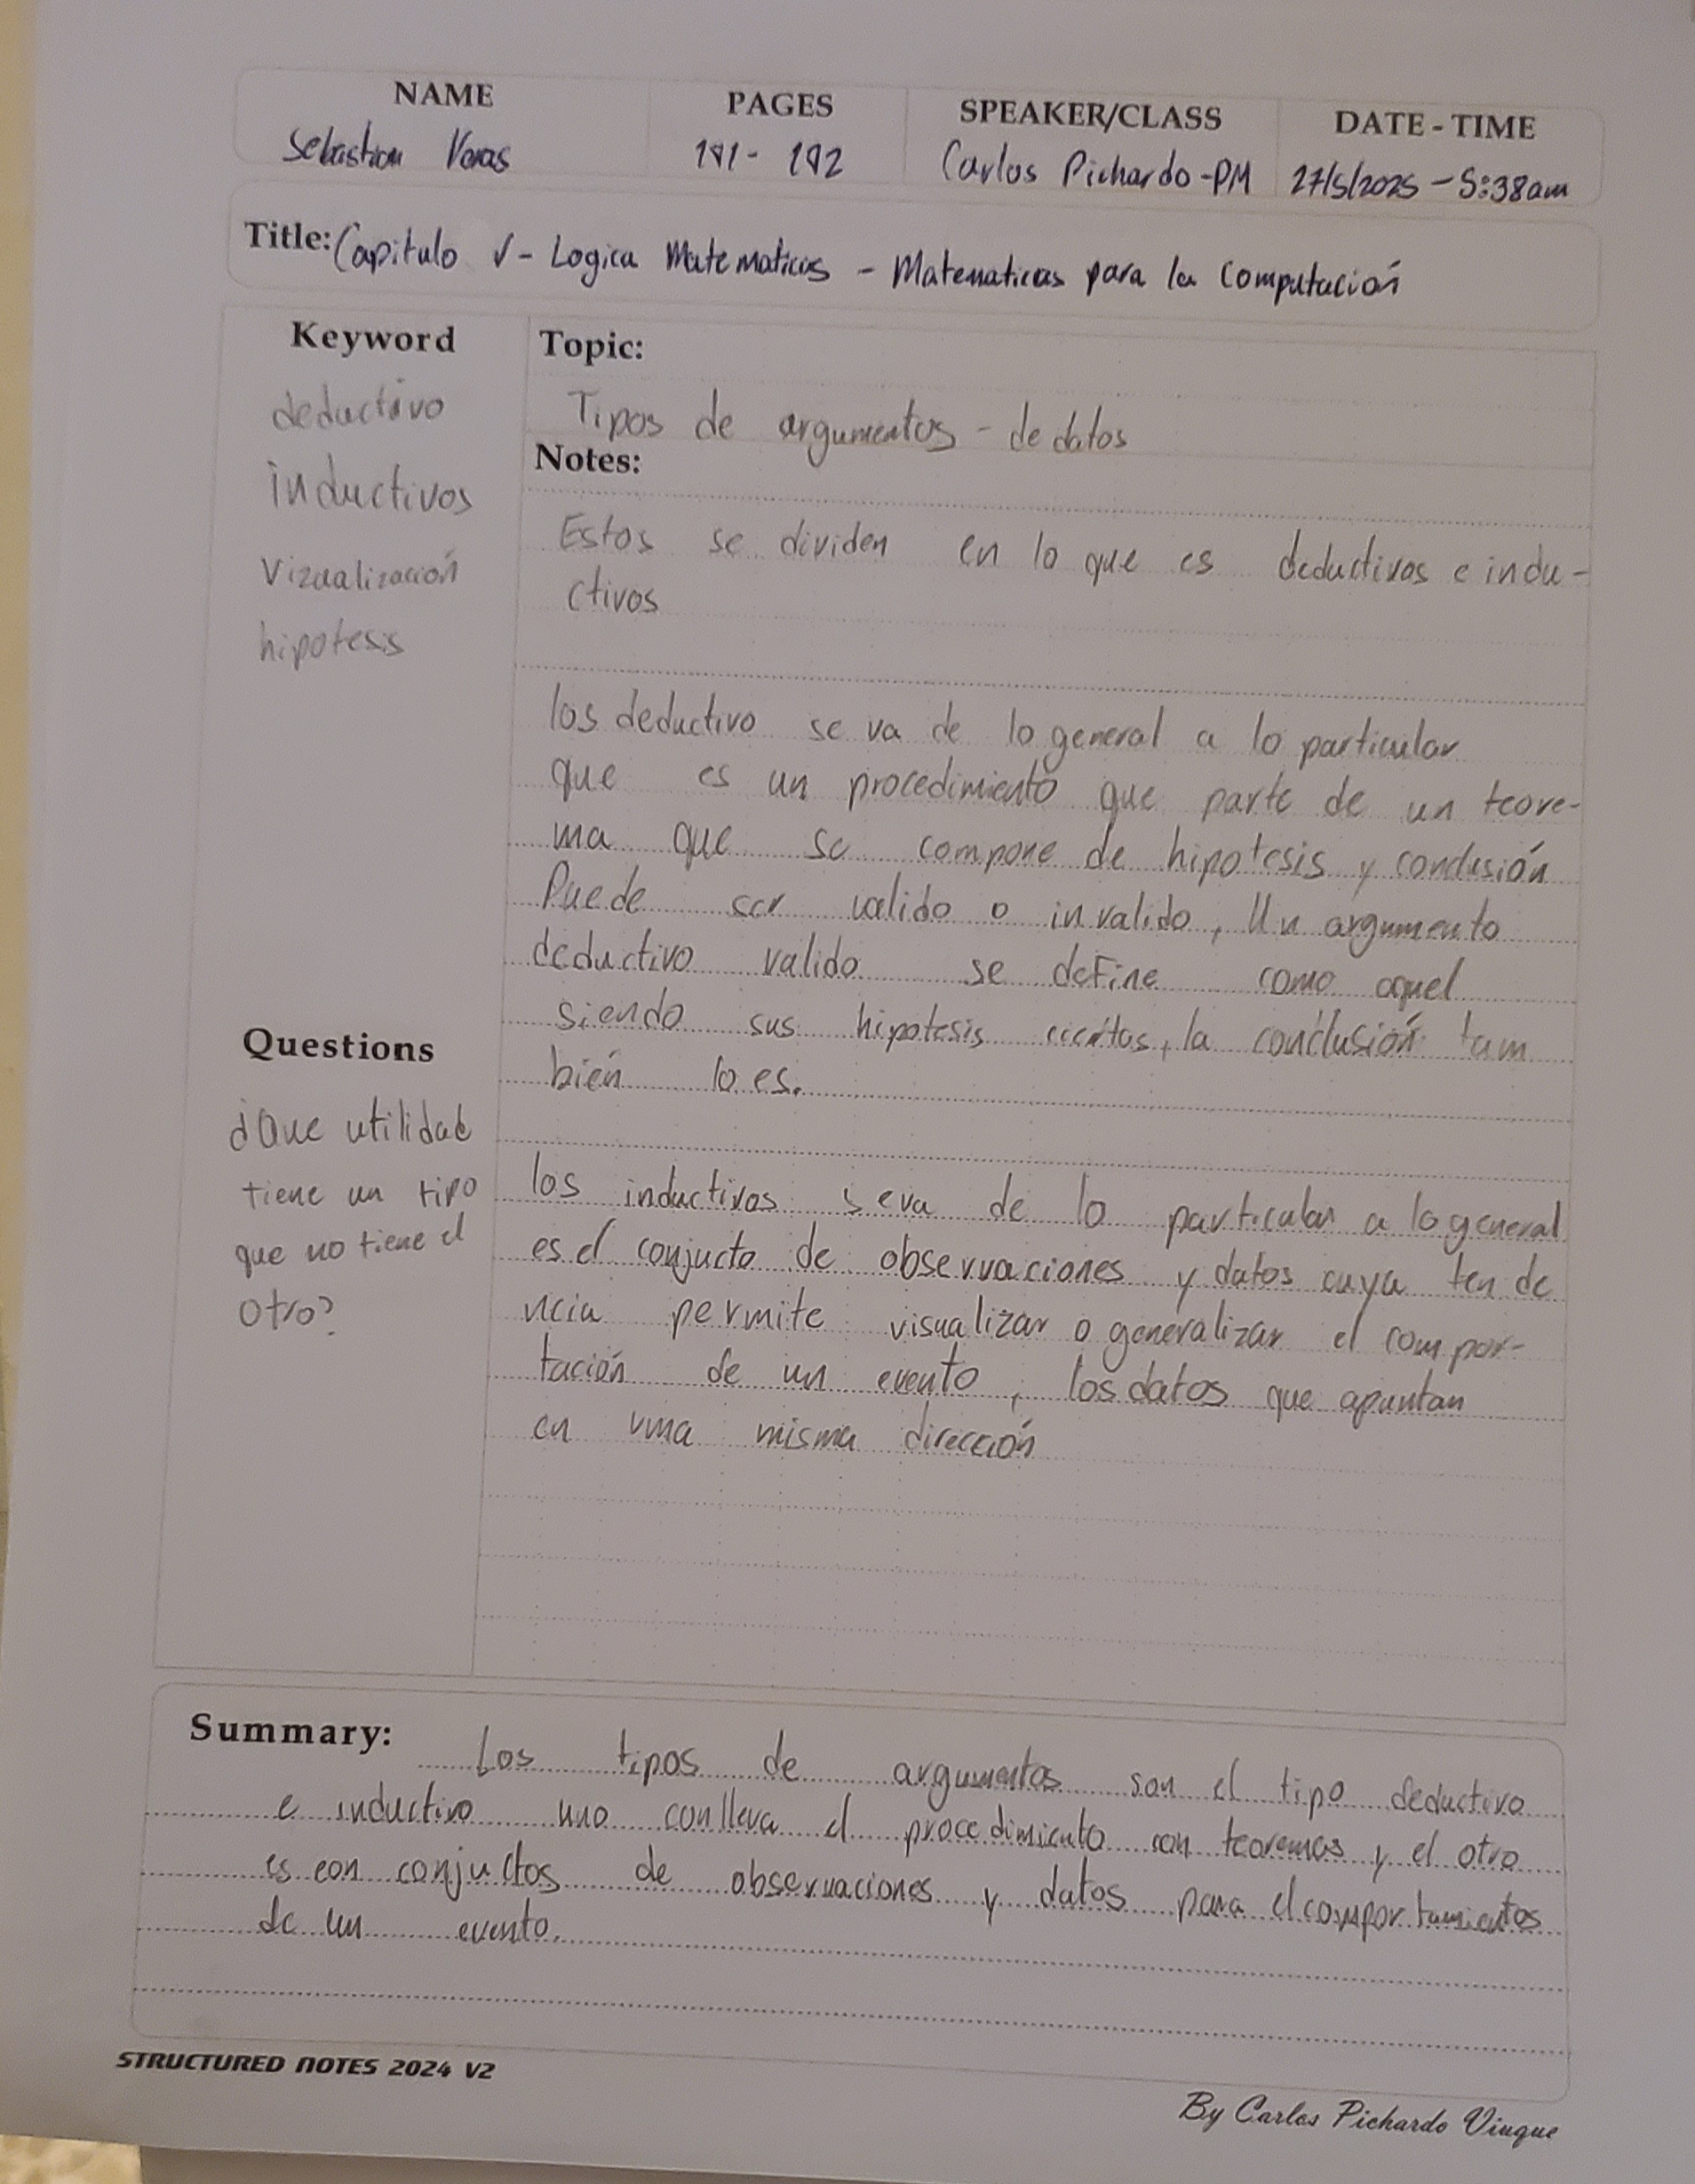 NAME
PAGES
SPEAKER/CLASS
DATE - TIME
Sebastian Varas
191 - 192
Carlos Pichardo -PM
27/5/2025 - 5:38am
Title: Capitulo V - Logica Matematicas - Matematicas para la computación
Keyword
deductivo
inductivos
Vizualización
hipotesis
Questions
¿Que utilidad
tiene un tipo
que no tiene el
otro?
Topic:
Tipos de argumentos - de datos
Notes:
Estos se dividen en lo que es deductivos e indu-
ctivos
los deductivo se va de lo general a lo particular
que es un procedimiento que parte de un teore-
ma que se compone de hipotesis y conclusión
Puede ser valido o invalido, Un argumento
deductivo valido se define como aquel
siendo sus hipotesis ciertas, la conclusión tam
bién lo es.
los inductivos seva de lo particular a lo general
es el conjucto de observaciones y datos cuya ten de
ncia permite visualizar o generalizar el compor-
tación de un evento, los datos que apuntan
en una misma dirección
Summary: Los tipos de argumentos son el tipo deductivo
e inductivo uno conlleva el procedimiento con teoremas y el otro
es con conjuctos de observaciones y datos para el comportamientos
de un evento.
STRUCTURED NOTES 2024 V2
By Carlos Pichardo Viuque